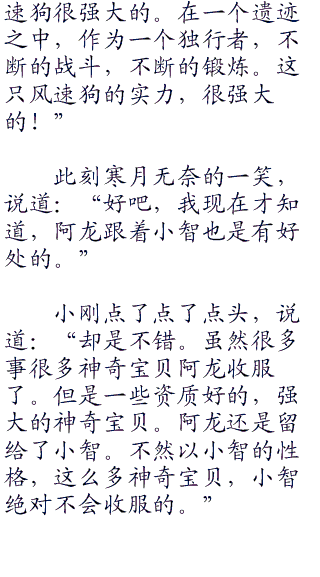 速狗很强大的。在一个遗迹
之中，作为一个独行者，不
断的战斗，不断的锻炼。这
只风速狗的实力，很强大
的！”
此刻寒月无奈的一笑，
说道：“好吧，我现在才知
道，阿龙跟着小智也是有好
处的。”
小刚点了点了点头，说
道：“却是不错。虽然很多
事很多神奇宝贝阿龙收服
了。但是一些资质好的，强
大的神奇宝贝。阿龙还是留
给了小智。不然以小智的性
格，这么多神奇宝贝，小智
绝对不会收服的。”